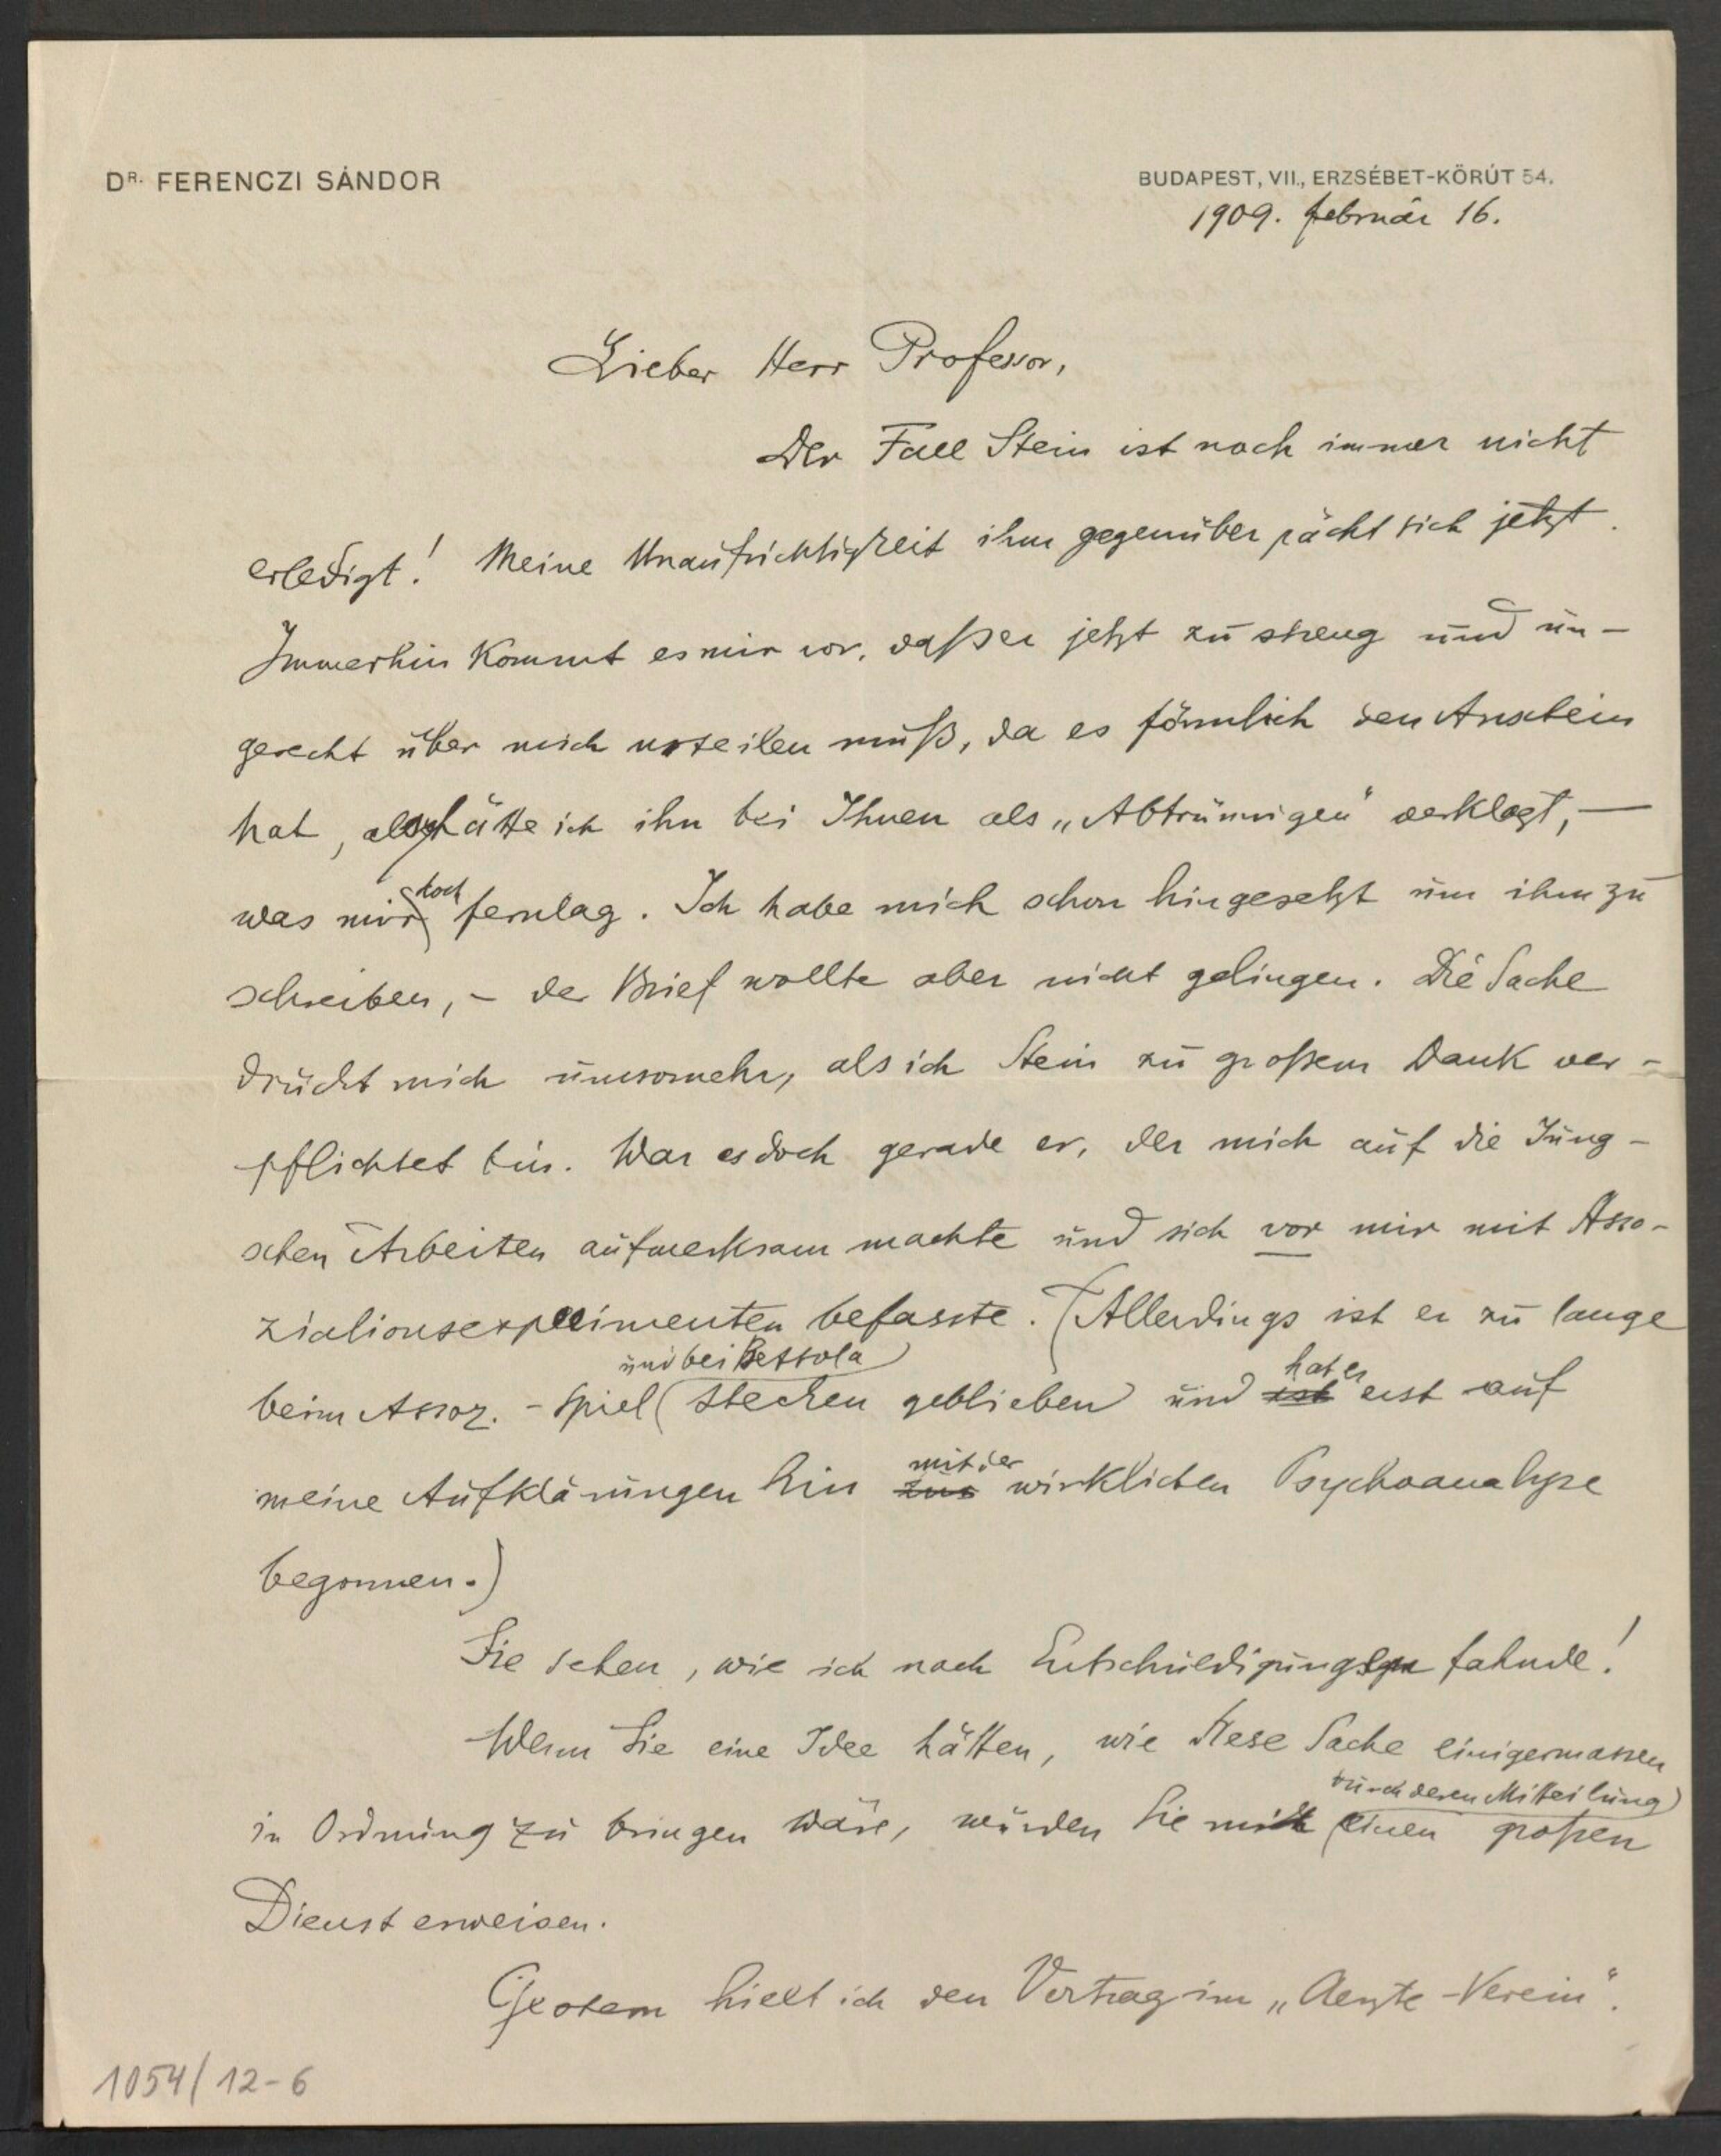 DR. FERENCZI SÁNDOR
BUDAPEST, VII., ERZSÉBET-KÖRÚT 54.
1909. február 16.
Lieber Herr Professor,
Der Fall Stein ist noch immer nicht
erledigt! Meine Unaufrichtigkeit ihm gegenüber rächt sich jetzt.
Immerhin kommt es mir vor, daß er jetzt zu streng und un-
gerecht über mich urteilen muß, da es förmlich den Anschein
hat, als hätte ich ihn bei Ihnen als „Abtrünnigen" verklagt, —
doch
was mir fernlag. Ich habe mich schon hingesetzt um ihm zu
schreiben, – der Brief wollte aber nicht gelingen. Die Sache
drückt mich umsomehr, als ich Stein zu großem Dank ver-
pflichtet bin. War es doch gerade er, der mich auf die Jung-
schen Arbeiten aufmerksam machte und sich vor mir mit Asso-
ziationsexperimenten befasste. (Allerdings ist er zu lange
und bei Bettola hat er
beim Assoz. - Spiel stecken geblieben und ist erst auf
mit der
meine Aufklärungen hin zur wirklichen Psychoanalyse
begonnen.)
Sie sehen, wie ich nach Entschuldigungen fahnde!
Wenn Sie eine Idee hätten, wie diese Sache einigermassen
durch deren Mitteilung
in Ordnung zu bringen wäre, würden Sie mir einen großen
Dienst erweisen.
Gestern hielt ich den Vortrag im „Aerzte-Verein".
1054/12-6